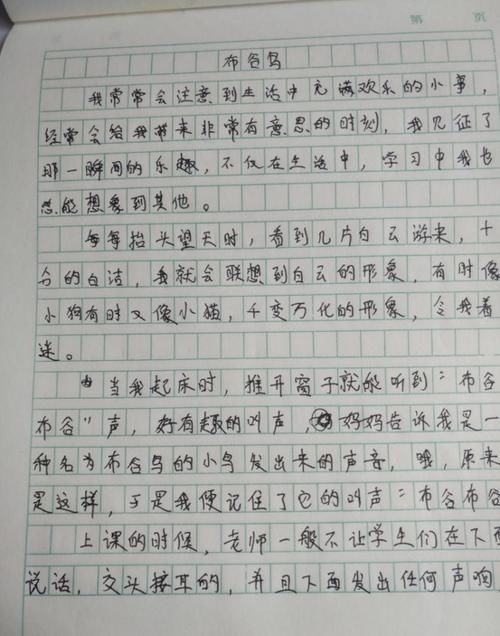 第 页
布谷鸟
我常常会注意到生活中充满欢乐的小事，
经常会给我带来非常有意思的时刻，我见证了
那一瞬间的乐趣，不仅在生活中，学习中我也
总能想象到其他。
每每抬头望天时，看到几片白云游来，十
分的白洁，我就会联想到白云的形象，有时像
小狗有时又像小猫，千变万化的形象，令我着
迷。
当我起床时，推开窗子就能听到“布谷
布谷”声，好有趣的叫声，妈妈告诉我是一
种名为布谷鸟的小鸟发出来的声音，哦，原来
是这样，于是我便记住了它的叫声“布谷布谷
上课的时候，老师一般不让学生们在下面
说话，交头接耳的，并且下面发出任何声响